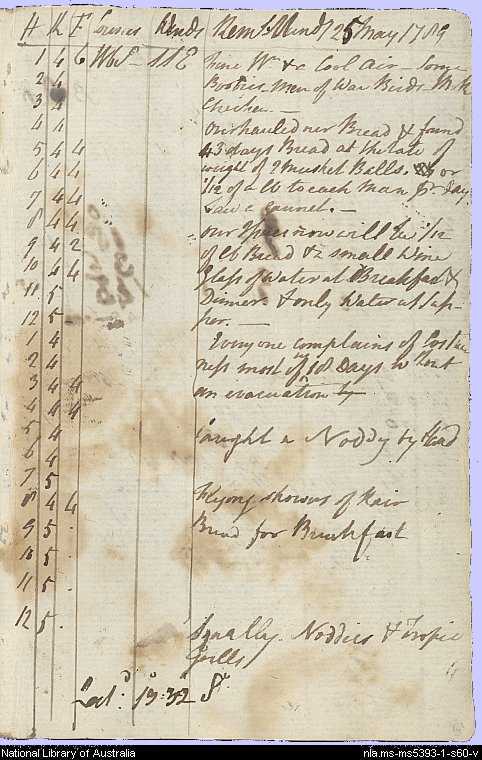 H K F Courses Winds Remks Mondy 25 May 1789
1 4 6 WbS SSE Fine Wr & a Cool Air - Some
2 4 Boobies, Men of War Birds Mr K
3 4 Checker. -
4 4 Overhauled our Bread & found
5 4 4 43 days Bread at the rate of
6 4 4 weight of 2 Musket Balls. or
7 4 4 1/12 of a lb to each Man pr day.
8 4 4 Saw a gannet. -
9 4 2 our now will be 1/12
10 4 4 of lb Bread & a small Wine
11 5 Glass of Water at Breakfast &
12 5 Dinner & only Water at Sup-
per. -
1 4 Every one complains of Costive
2 4 ness most of them 18 Days without
3 4 4 an evacuation by
4 4 4
5 4 Caught a Noddy by Hand
6 4
7 5
8 4 4 showers of Rain
9 5 Bread for Breakfast
10 5
11 5
12 5 Squally Noddies & Tropic
Gulls
Latd. 13:32 S.
National Library of Australia nla.ms-ms5393-1-s60-v